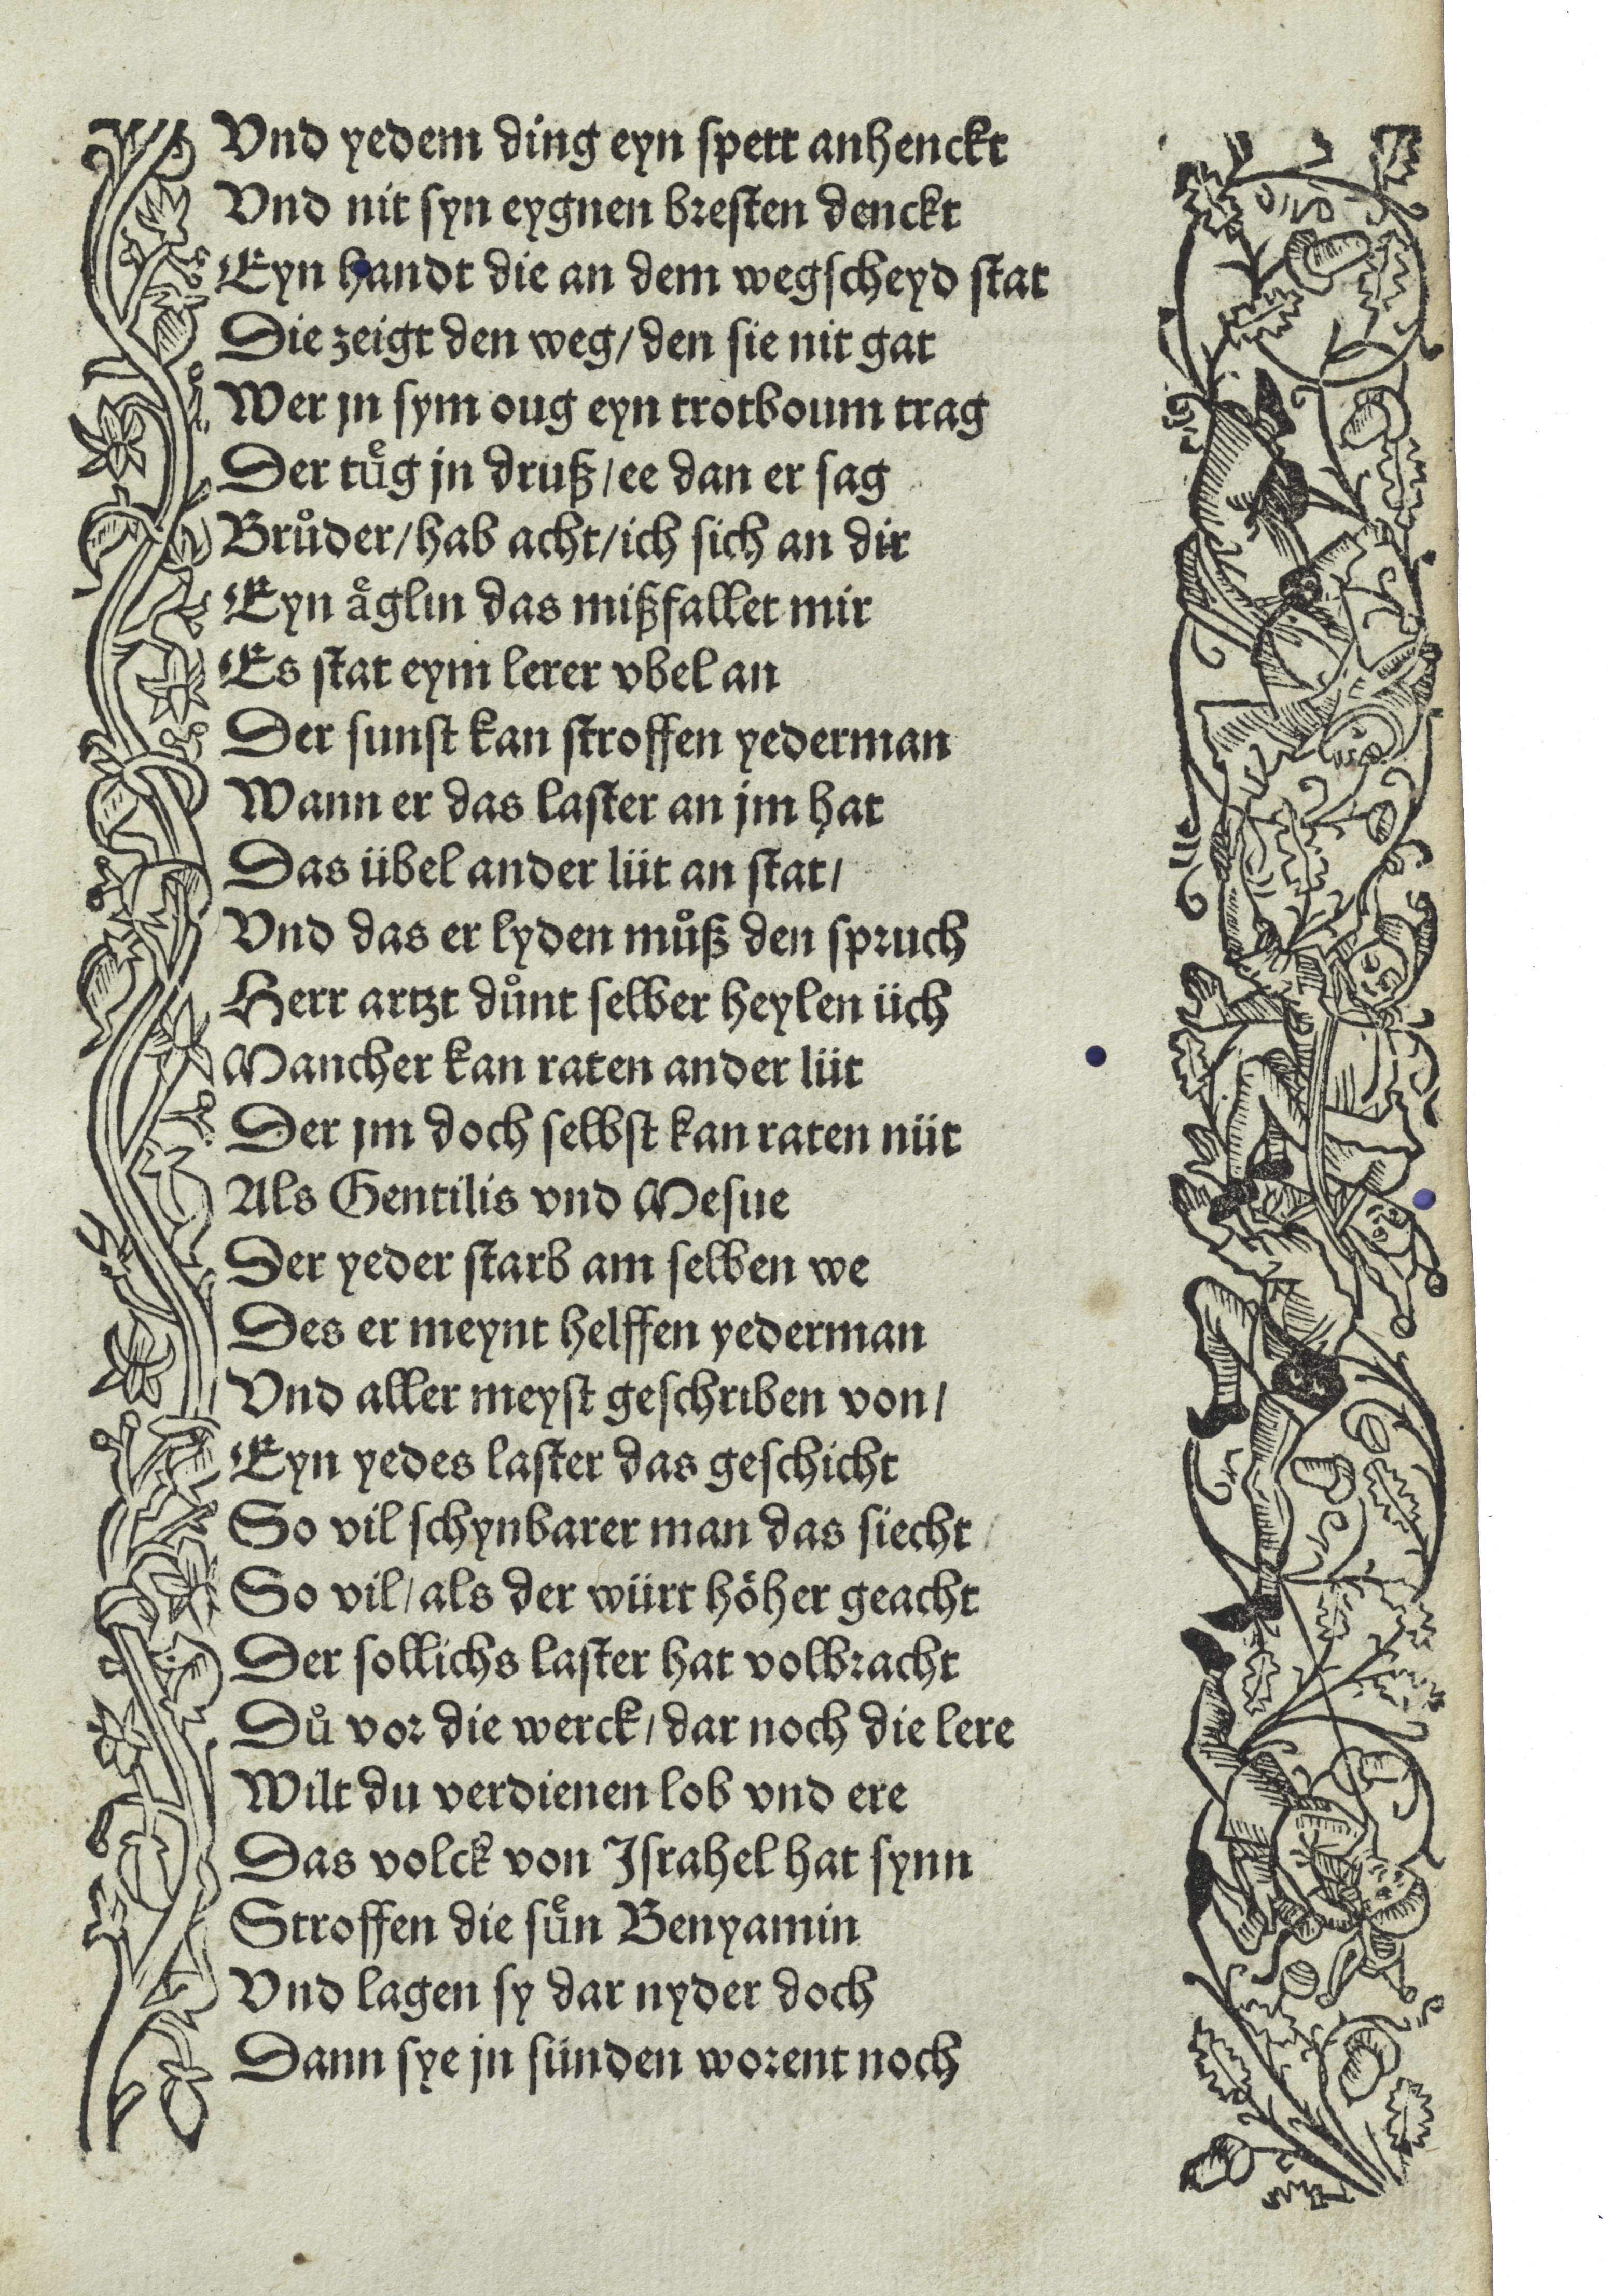 Vnd yedem ding eyn spett anhenckt
Vnd nit syn eygnen bresten denckt
Eyn handt die an dem wegscheyd stat
Die zeigt den weg/ den sie nit gat
Wer jn sym oug eyn trotboum trag
Der tuͤg jn druß/ ee dan er sag
Bruͦder/ hab acht/ ich sich an dir
Eyn aͤglin das mißfallet mir
Es stat eym lerer vbel an
Der sunst kan stroffen yederman
Wann er das laster an jm hat
Das übel ander lüt an stat/
Vnd das er lyden muͦß den spruch
Herr artzt duͦnt selber heylen üch
Mancher kan raten ander lüt
Der jm doch selbst kan raten nüt
Als Gentilis vnd Mesue
Der yeder starb am selben we
Des er meynt helffen yederman
Vnd aller meyst geschriben von/
Eyn yedes laster das geschicht
So vil schynbarer man das siecht
So vil/ als der würt höher geacht
Der sollichs laster hat volbracht
Duͦ vor die werck/ dar noch die lere
Wilt du verdienen lob vnd ere
Das volck von Israhel hat synn
Stroffen die suͤn Benyamin
Vnd lagen sy dar nyder doch
Dann sye jn sünden worent noch